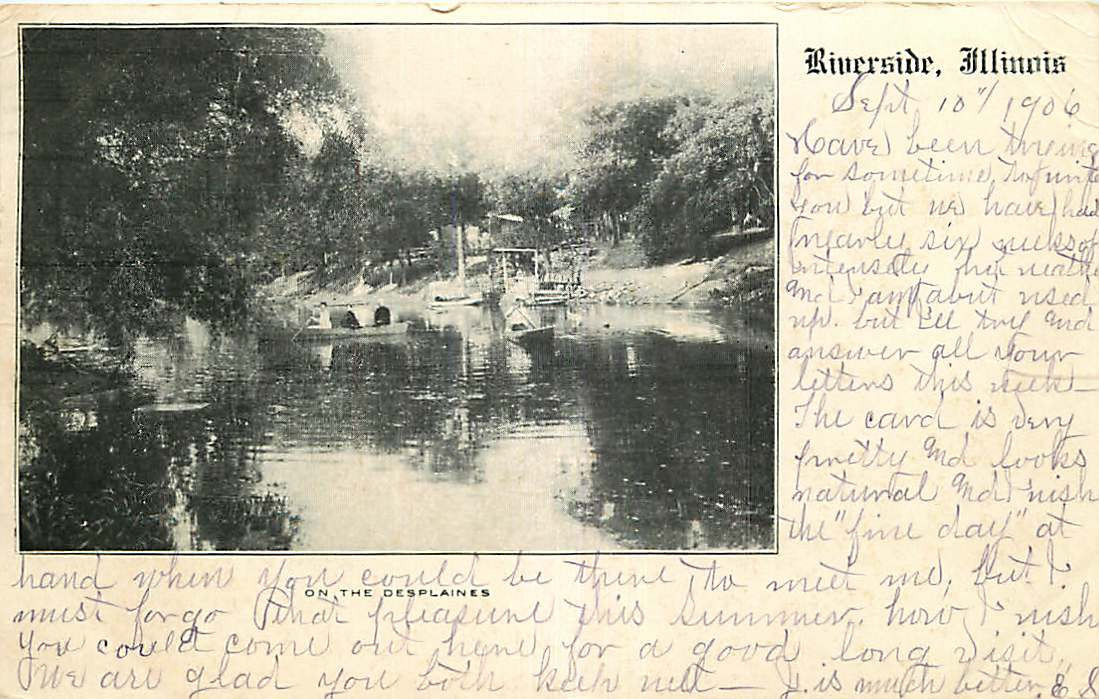 Riverside, Illinois
Sept 10"/1906
Have been trying
for sometime to write
you but we have had
nearly six weeks of
intensely hot weather
and I am about used
up. but I'll try and
answer all your
letters this week—
The card is very
pretty and looks
natural and I wish
the "fine day" at
hand when you could be there to meet me, but I
ON THE DESPLAINES
must forgo that pleasure this summer. how I wish
you could come out here for a good long visit.
We are glad you both keep well— J. is much better E S